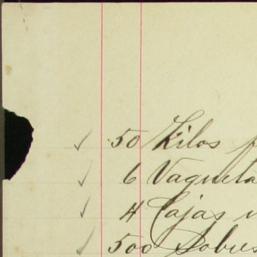 ✓ 50 Kilos
✓ 6 Vaqueta
✓ 4 Cajas
✓ 500 Sobres